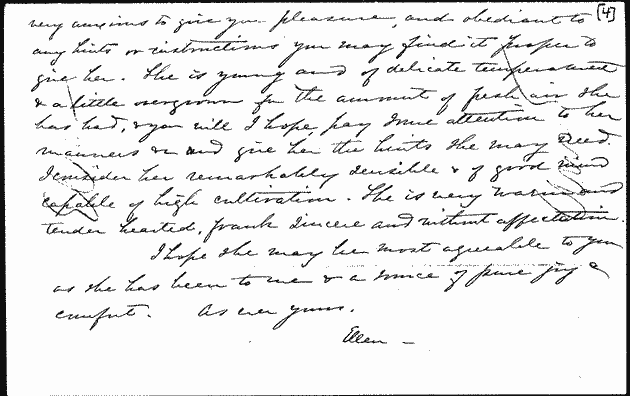 very anxious to give you pleasure, and obedient to [4]
any hints or instructions you may find it proper to
give her. She is young and of delicate temperament
& a little overgrown for the amount of fresh air she
has had, & you will I hope, pay some attention to her
manners & and give her the hints she may need.
I consider her remarkably sensible & of good mind
capable of high cultivation. She is very warm and
tender hearted, frank sincere and without affectation.
I hope she may be most agreeable to you
as she has been to me & a source of pure joy &
comfort. As ever yours.
Ellen –